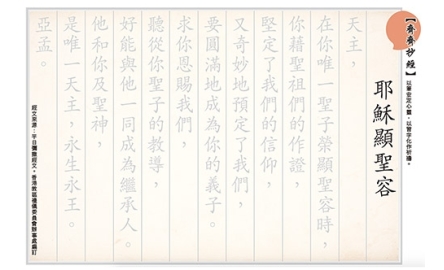 【齊齊抄經】
以筆安定心靈，以習字化作祈禱。
耶穌顯聖容
天主，
在你唯一聖子榮顯聖容時，
你藉聖祖們的作證，
堅定了我們的信仰，
又奇妙地預定了我們，
要圓滿地成為你的義子。
求你恩賜我們，
聽從你聖子的教導，
好能與他一同成為繼承人。
他和你及聖神，
是唯一天主，永生永王。
亞孟。
經文來源：平日彌撒經文，香港教區禮儀委員會辦事處編訂